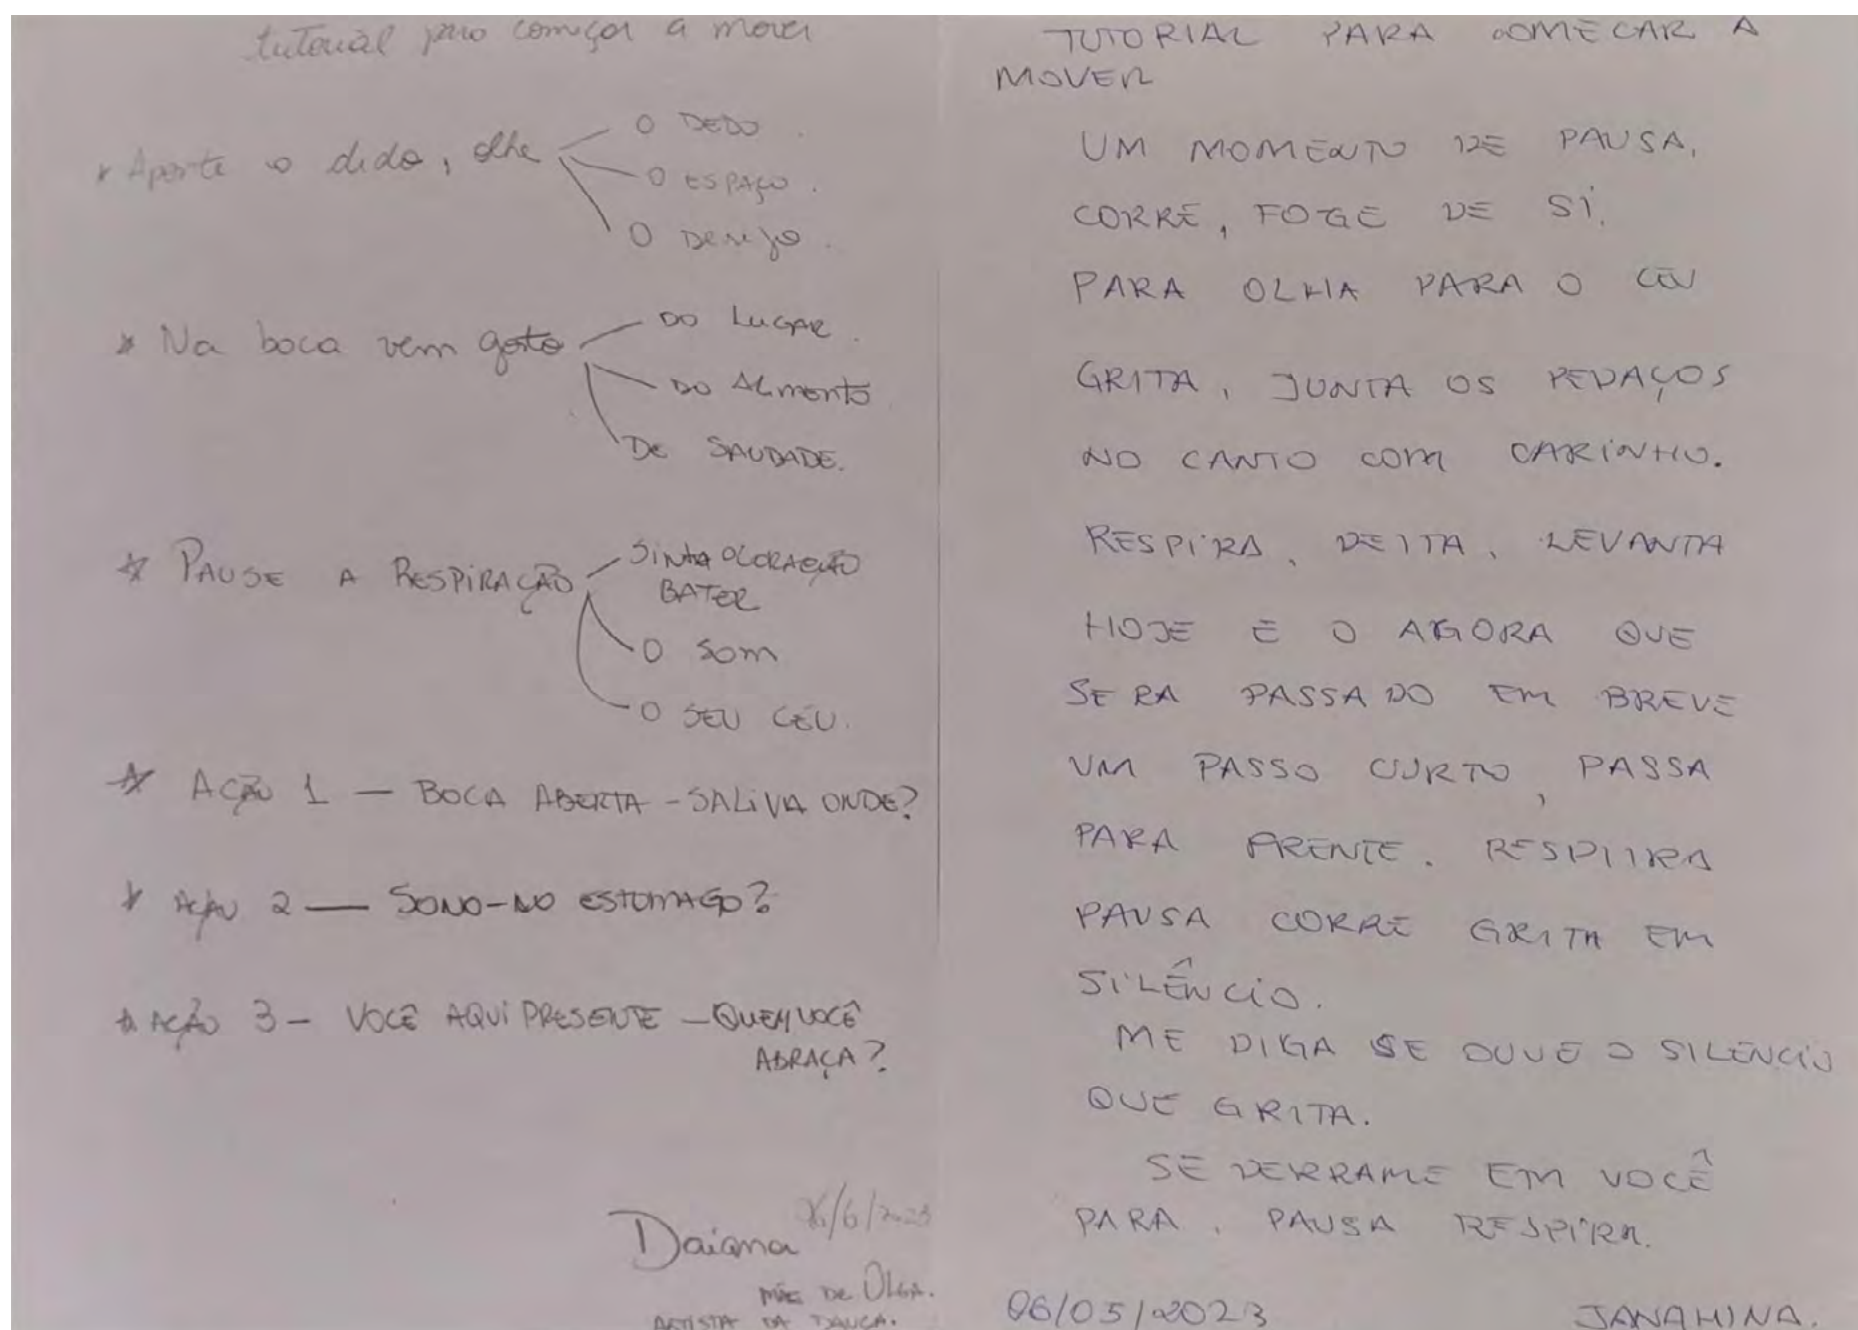 tutorial para começar a mover
* Aperte o dedo, olhe
O DEDO.
O ESPAÇO.
O Desejo.
* Na boca vem gosto
DO LUGAR.
DO ALimento.
DE SAUDADE.
* PAUSE A RESPIRAÇÃO
SINTA O CORAÇÃO
BATER
O SOM
O SEU CÉU.
* AÇÃO 1 — BOCA ABERTA - SALIVA ONDE?
* AÇÃO 2 — SONO - NO ESTOMAGO?
* AÇÃO 3 - VOCÊ AQUI PRESENTE - QUEM VOCÊ
ABRAÇA?
/6/2023
Daiana
MÃE DE OLGA.
ARTISTA DA DANÇA.
TUTORIAL PARA COMECAR A
MOVER
UM MOMENTO DE PAUSA.
CORRE, FOGE DE SI.
PARA OLHA PARA O CÉU
GRITA, JUNTA OS PEDAÇOS
NO CANTO COM CARINHO.
RESPIRA, DEITA, LEVANTA
HOJE É O AGORA QUE
SERA PASSADO EM BREVE
UM PASSO CURTO, PASSA
PARA FRENTE. RESPIIRA
PAUSA CORRE GRITA EM
SILÊNCIO.
ME DIGA SE OUVE O SILENCIO
QUE GRITA.
SE DERRAME EM VOCÊ
PARA, PAUSA RESPIRA.
06/05/2023
JANAHINA.